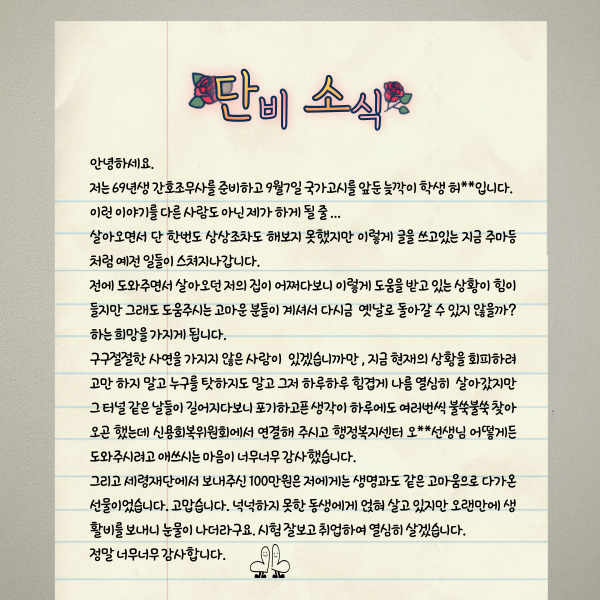 단비 소식
안녕하세요.
저는 69년생 간호조무사를 준비하고 9월7일 국가고시를 앞둔 늦깍이 학생 허**입니다.
이런 이야기를 다른 사람도 아닌 제가 하게 될 줄 ...
살아오면서 단 한번도 상상조차도 해보지 못했지만 이렇게 글을 쓰고있는 지금 주마등
처럼 예전 일들이 스쳐지나갑니다.
전에 도와주면서 살아오던 저의 집이 어쩌다보니 이렇게 도움을 받고 있는 상황이 힘이
들지만 그래도 도움주시는 고마운 분들이 계셔서 다시금 옛날로 돌아갈 수 있지 않을까?
하는 희망을 가지게 됩니다.
구구절절한 사연을 가지지 않은 사람이 있겠습니까만 , 지금 현재의 상황을 회피하려
고만 하지 말고 누구를 탓하지도 말고 그저 하루하루 힘겹게 나름 열심히 살아갔지만
그 터널 같은 날들이 길어지다보니 포기하고픈 생각이 하루에도 여러번씩 불쑥불쑥 찾아
오곤 했는데 신용회복위원회에서 연결해 주시고 행정복지센터 오**선생님 어떻게든
도와주시려고 애쓰시는 마음이 너무너무 감사했습니다.
그리고 세령재단에서 보내주신 100만원은 저에게는 생명과도 같은 고마움으로 다가온
선물이었습니다. 고맙습니다. 넉넉하지 못한 동생에게 얹혀 살고 있지만 오랜만에 생
활비를 보내니 눈물이 나더라구요. 시험 잘보고 취업하여 열심히 살겠습니다.
정말 너무너무 감사합니다.